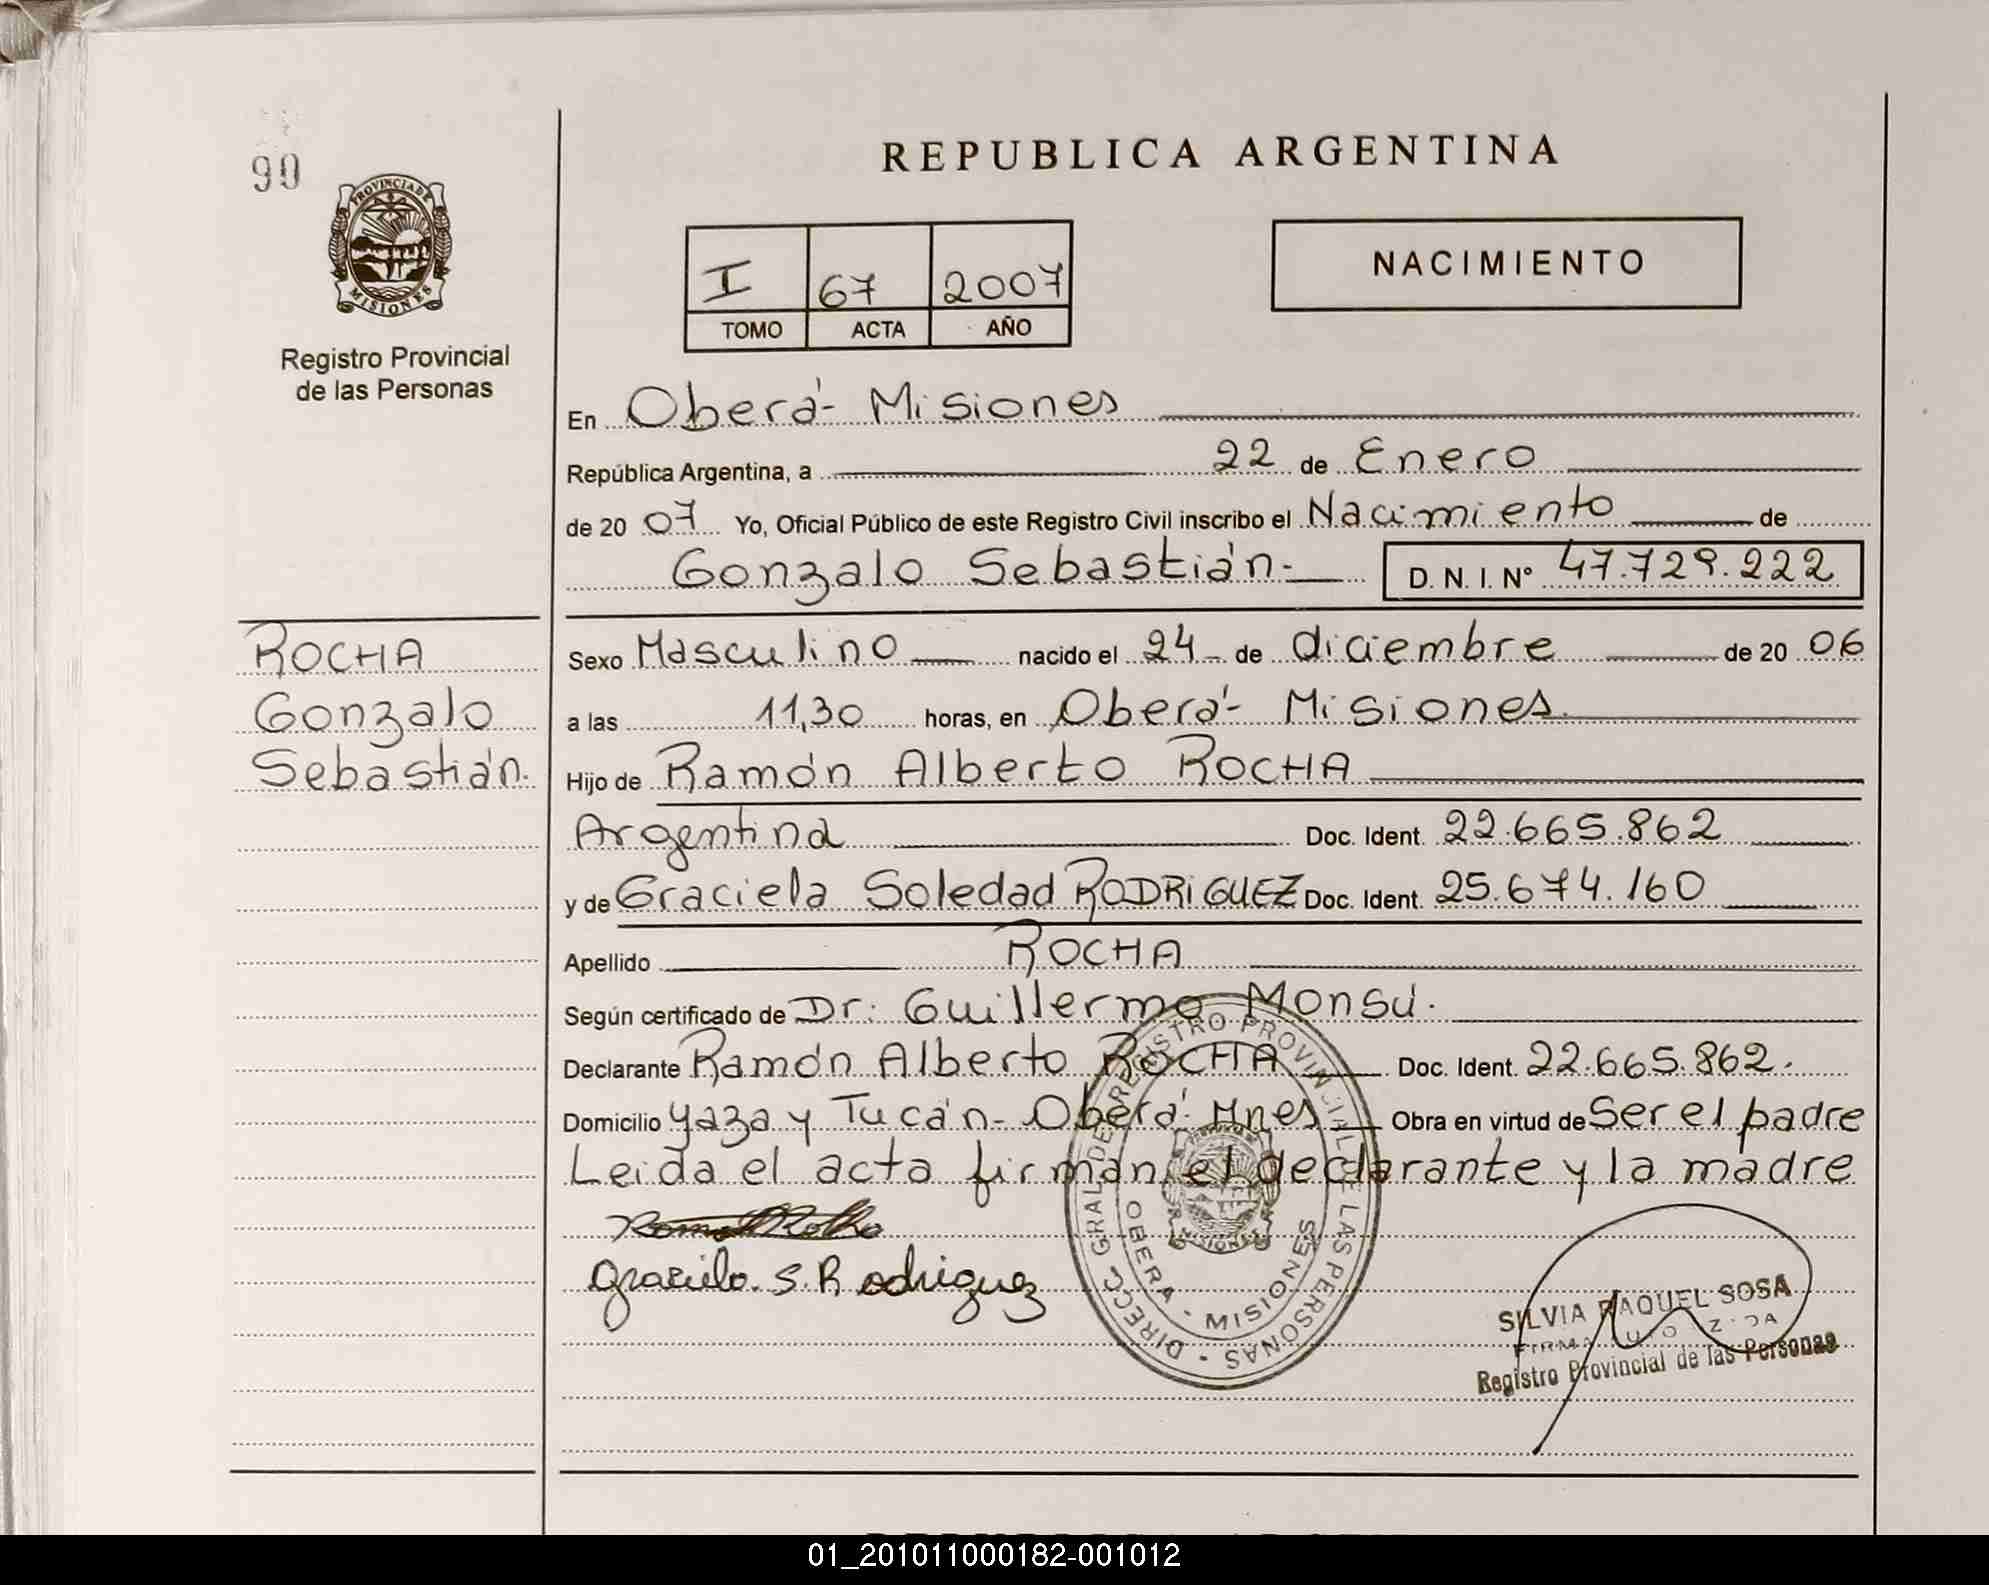 90
PROVINCIA DE
MISIONES
Registro Provincial
de las Personas
REPUBLICA ARGENTINA
I 67 2007
TOMO ACTA AÑO
NACIMIENTO
En Oberá - Misiones
República Argentina, a 22 de Enero
de 20 07 Yo, Oficial Público de este Registro Civil inscribo el Nacimiento de
Gonzalo Sebastián.- D. N. I. Nº 47.729.222
ROCHA
Gonzalo
Sebastián.
Sexo Masculino nacido el 24 de diciembre de 20 06
a las 11,30 horas, en Oberá - Misiones.
Hijo de Ramón Alberto ROCHA
Argentina Doc. Ident. 22.665.862
y de Graciela Soledad RODRIGUEZ Doc. Ident. 25.674.160
Apellido ROCHA
Según certificado de Dr: Guillermo Monsú.
Declarante Ramón Alberto ROCHA Doc. Ident. 22.665.862.
Domicilio Yaza y Tucán - Oberá - Mnes Obra en virtud de Ser el padre
Leida el acta firman el declarante y la madre
Graciela. S. Rodriguez
DIRECC. GRAL. DE REGISTRO PROVINCIAL DE LAS PERSONAS
OBERA - MISIONES
MISIONES
SILVIA RAQUEL SOSA
FIRMA AUTORIZADA
Registro Provincial de las Personas
01_201011000182-001012